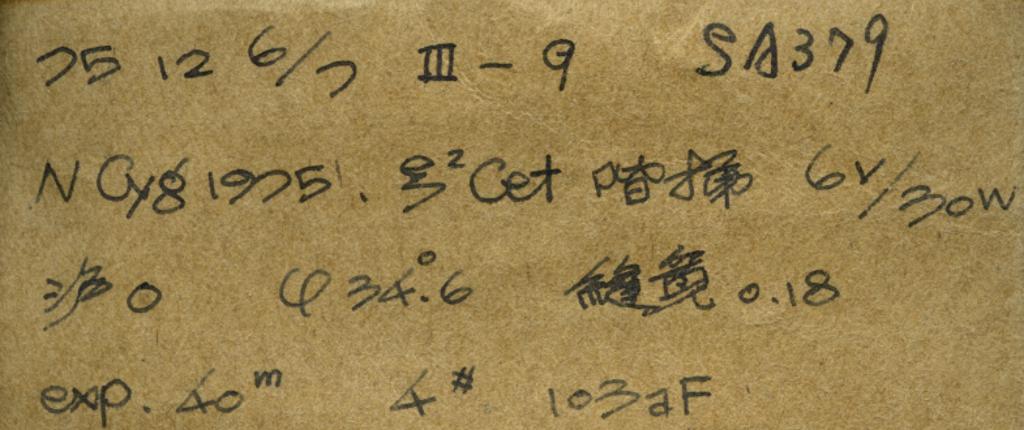 75 12 6/7 III - 9 SA379
N Cyg 1975'. ξ²Cet 暗掃 6V/30W
沪0 φ 34°.6 縫寬 0.18
exp. 40ᵐ 4# 103aF